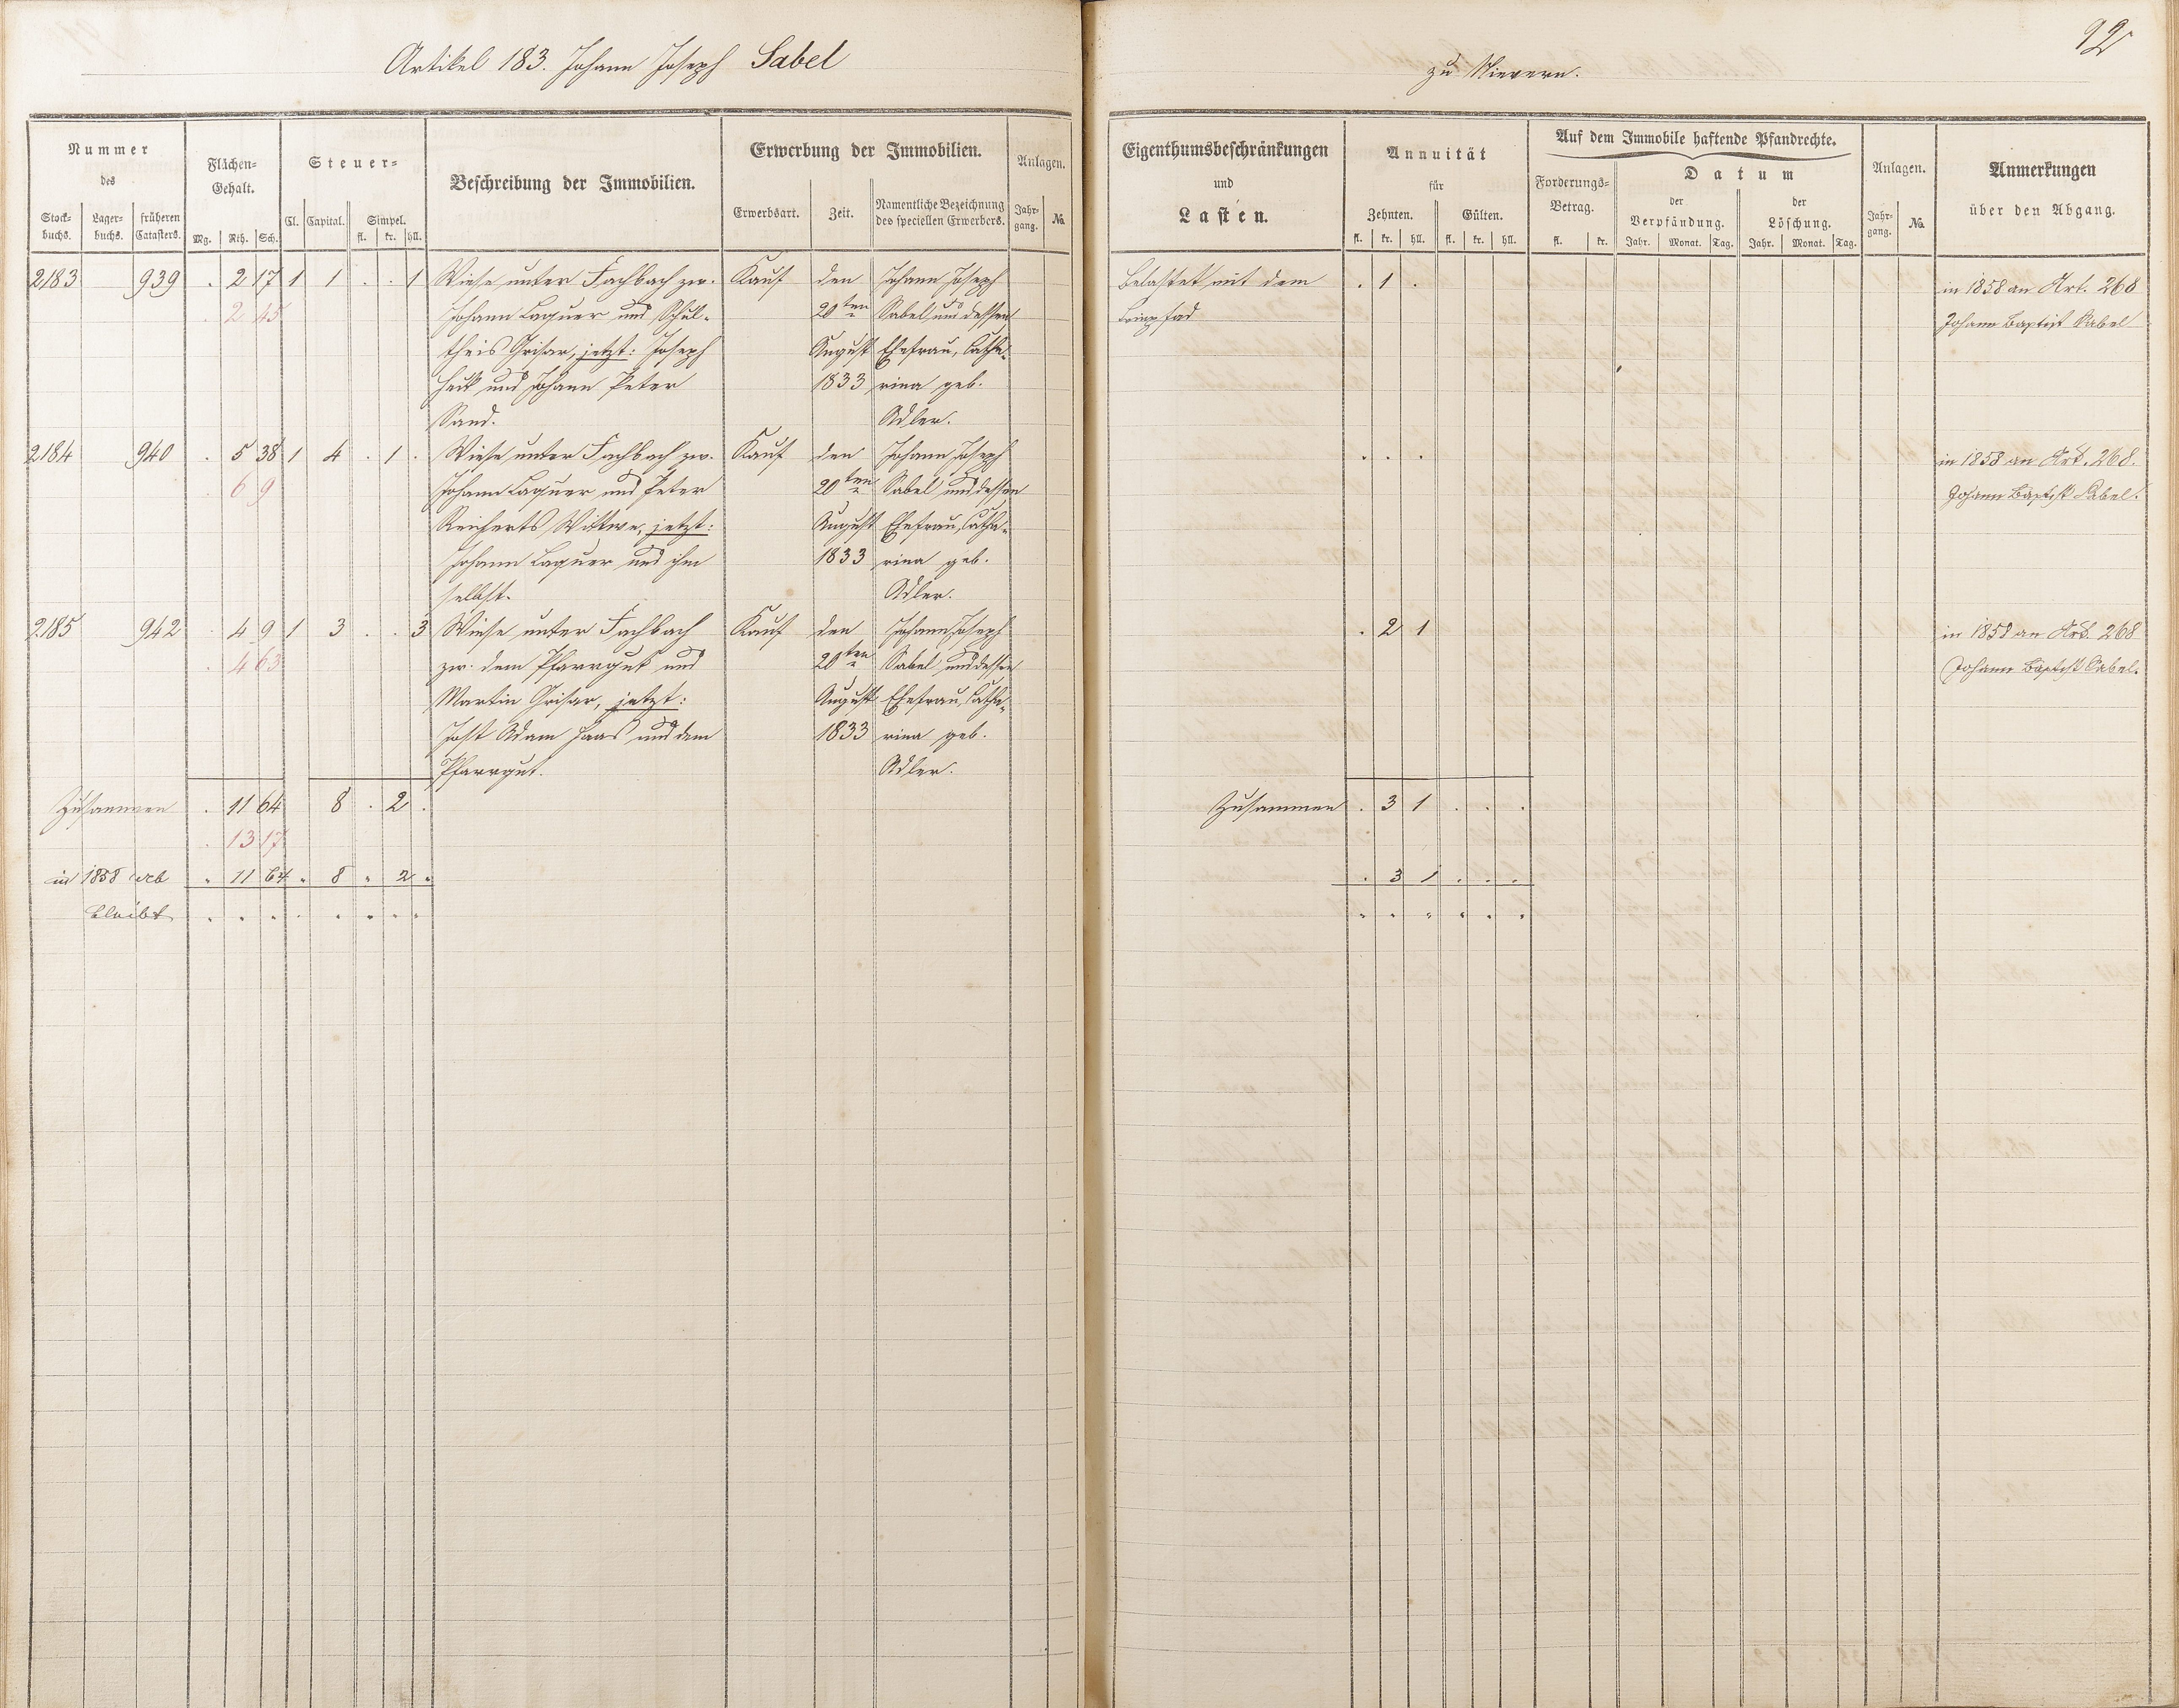 92
Artikel 183. Johann Joseph Sabel
zu Nievern.
Nummer
des
Stock-
buchs.
Lager-
buchs.
früheren
Catasters.
Flächen-
Gehalt.
Mg. Rth. Sch.
Steuer-
Cl. Capital. Simpel.
fl. kr. hll.
Beschreibung der Immobilien.
Erwerbung der Immobilien.
Erwerbsart. Zeit. Namentliche Bezeichnung
des speciellen Erwerbers.
Anlagen.
Jahr-
gang. No.
2183 939 . 2 17 1 1 . . 1 Wiese unter Fachbach zw. Kauf den Johann Joseph
. 2 45 Johann Laquer und Schul- 20ten Sabel und dessen
theis Grisar, jetzt: Joseph August Ehefrau, Catha-
Heck und Johann Peter 1833 rina geb.
Sand. Adler.
2184 940 . 5 38 1 4 . 1 . Wiese unter Fachbach zw. Kauf den Johann Joseph
. 6 9 Johann Laquer und Peter 20ten Sabel und dessen
Reicherts Wittwe, jetzt: August Ehefrau, Catha-
Johann Laquer und ihm 1833 rina geb.
selbst. Adler.
2185 942 . 4 9 1 3 . . 3 Wiese unter Fachbach Kauf den Johann Joseph
. 4 63 zw. dem Pfarrgut und 20ten Sabel und dessen
Martin Grisar, jetzt: August Ehefrau, Catha-
Jost Adam Haas und dem 1833 rina geb.
Pfarrgut. Adler.
Zusammen . 11 64 8 . 2 .
. 13 17
in 1858 reb . 11 64 . 8 . 2 .
bleibt . . . . . . . .
Eigenthumsbeschränkungen
und
Lasten.
Annuität
für
Zehnten. Gülten.
fl. kr. hll. fl. kr. hll.
Auf dem Immobile haftende Pfandrechte.
Forderungs-
Betrag.
fl. kr.
Datum
der
Verpfändung.
Jahr. Monat. Tag.
der
Löschung.
Jahr. Monat. Tag.
Anlagen.
Jahr-
gang. No.
Anmerkungen
über den Abgang.
Belastet mit dem . 1 . in 1858 an Art. 268
Leinpfad Johann Baptist Sabel
. . . in 1858 an Art. 268.
Johann Baptist Sabel.
. 2 1 in 1858 an Art. 268
Johann Baptist Sabel.
Zusammen . 3 1 . . .
. 3 1 . . .
. . . . . .